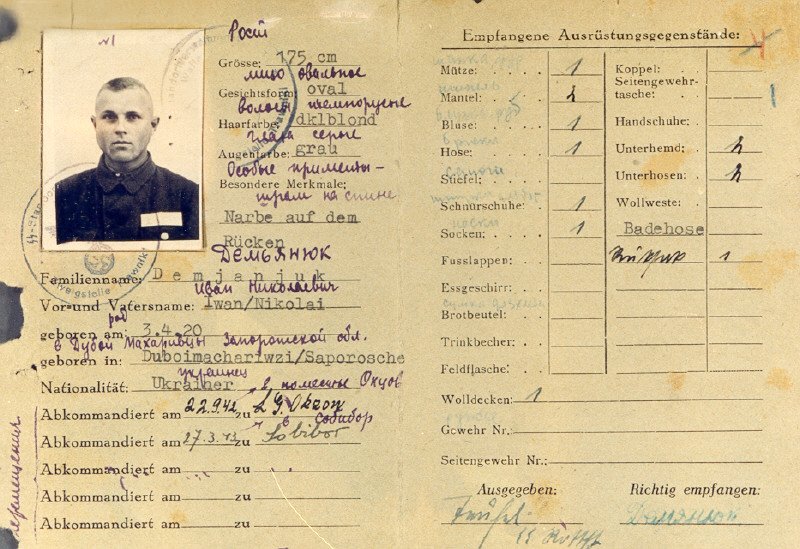 №1
Рост
Grösse: 175 cm
лицо овальное
Gesichtsform: oval
волосы темнорусые
Haarfarbe: dklblond
глаза серые
Augenfarbe: grau
Особые приметы -
Besondere Merkmale:
шрам на спине
Narbe auf dem
Rücken
ДЕМЬЯНЮК
Familienname: Demjanjuk
Иван Николаевич
Vor-und Vatersname: Iwan/Nikolai
род
geboren am: 3.4.20
в Дубой Махаривцы Запорожской обл.
geboren in: Duboimachariwzi/Saporosche
украинец
Nationalität: Ukrainer
в поместье Окцов
Abkommandiert am 22.9.42 zu L.G. Okzow
в Собибор
Abkommandiert am 27.3.43 zu Sobibor
Abkommandiert am zu
Abkommandiert am zu
Abkommandiert am zu
перемещения
Empfangene Ausrüstungsgegenstände:
4
Mütze: 1
Mantel: 2
Bluse: 1
Hose: 1
Stiefel:
Schnürschuhe: 1
Socken: 1
Fusslappen:
Essgeschirr:
Brotbeutel:
Trinkbecher:
Feldflasche:
Wolldecken: 1
Gewehr Nr.:
Seitengewehr Nr.:
Koppel:
Seitengewehr-
tasche: 1
Handschuhe:
Unterhemd: 2
Unterhosen: 2
Wollweste:
Badehose
1
Ausgegeben: Richtig empfangen:
Teufel Демянюк
SS Rottf